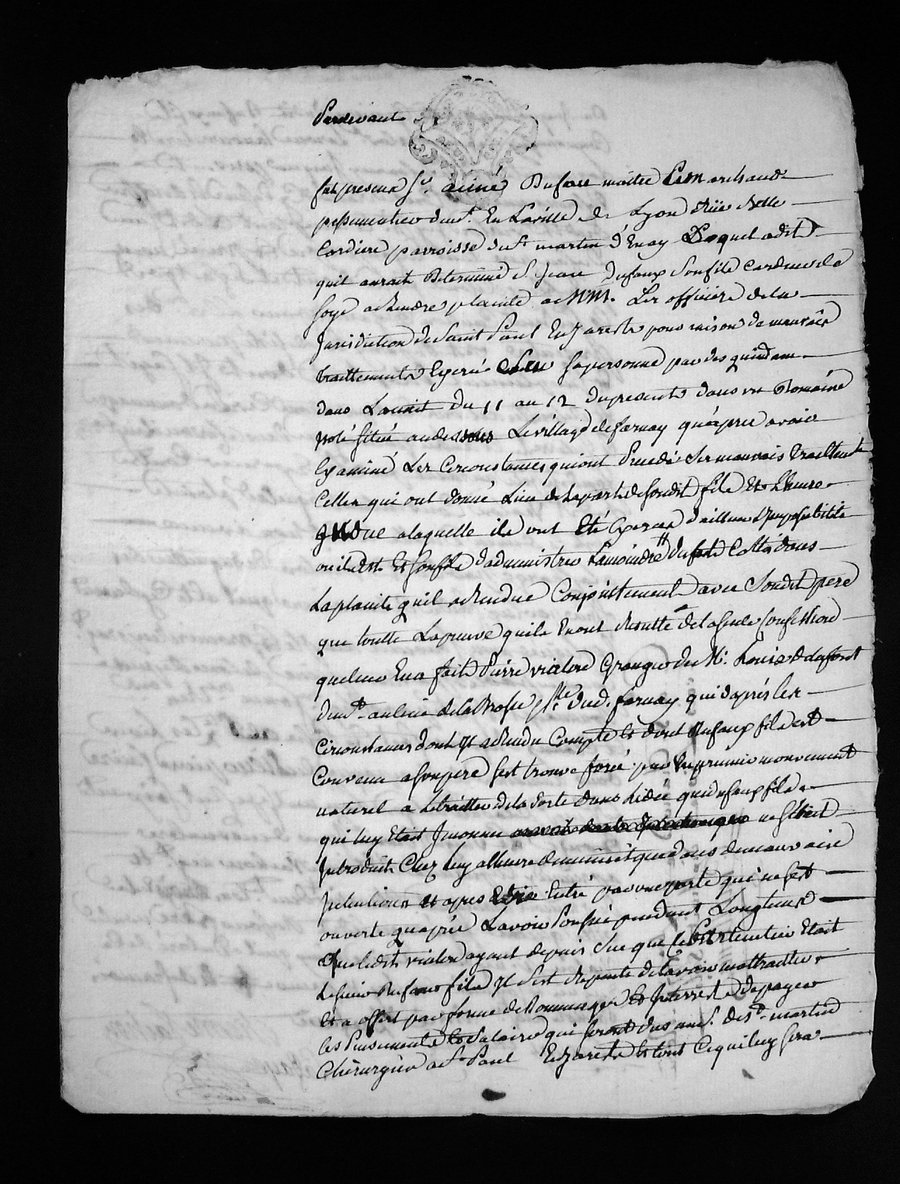 Pardevant
fut present Sr. aimé Dufau maitre & marchand
passementier demt. En Laville de Lyon Rüe Belle
Cordiere parroisse de St. martin d'Enay Lequel a dit
quil aurait Determiné S. Jean Dufaux Son fils Cardeur de
Soye a Rendre plainte a MM. Les officiers de la
Jurisdiction de Saint Paul En Jarest pour raison de mauvais
traittements Exercés Sur Sa personne par des quidams
dans La nuit du 11 au 12 du present dans un Domaine
situé audessous Le village de farnay qu'apres avoir
Examiné Les Circonstances qui ont Precedé Ses mauvais traittemts
Celles qui ont donné Lieu de La part de Sondit fils Et L'heure
indue a laquelle ils ont Eté Exercés d'ailleurs L'impossibilité
ou il Est Et Son fils d'administrer La moindre du fait dans
La plainte quil a Rendue Conjointement avec Sondit pere
que toutte La preuve quils En ont Resulte de la Seule Confession
que leur En a fait Pierre Granger de Mr. Louis Delaforest
demt. au Lieu de la psse. dud. farnay qui d'après les
Circonstances dont Il a Rendu Compte Et dont Dufaux fils Est
Convenu a Son pere S'est trouvé forcé par Un premier mouvement
naturel a Le traitter de la Sorte dans L'idée que Dufaux fils
qui luy Etait Inconnu ne S'Etait
Introduit Chez luy a l'heure de minuit que dans de mauvaises
Intentions Et apres Etre Entré par une porte qui ne S'est
ouverte qu'après L'avoir pendant Longtems
que ledit ayant depuis Sue que Etait
Le Sieur Dufaux fils Il S'est Repenti de L'avoir maltraitté
Et a offert par forme de Dommages Et Interrets de payer
Les Pansements Et Salaires qui Seront dus au Sr. de St. martin
Chirurgien a St. Paul En Jarest Et tout Ce qui luy Sera